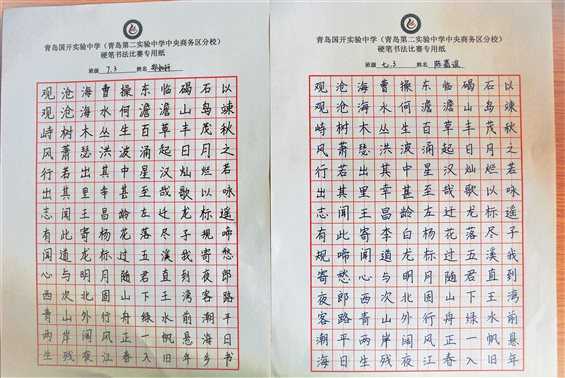 青岛国开实验中学（青岛第二实验中学中央商务区分校）
硬笔书法比赛专用纸
班级 7.3 姓名
观沧海曹操东临碣石以
观沧海水何澹澹山岛竦
峙树木丛生百草丰茂秋
风萧瑟洪波涌起日月之
行若出其中星汉灿烂若
出其里幸甚至哉歌以咏
志闻王昌龄左迁龙标遥
有此寄杨花落尽子规啼
闻道龙标过五溪我寄愁
心与明月随君直到夜郎
西次北固山下王湾客路
青山外行舟绿水前潮平
两岸阔风正一帆悬海日
生残夜江春入旧年乡书
青岛国开实验中学（青岛第二实验中学中央商务区分校）
硬笔书法比赛专用纸
班级 七.3 姓名
观沧海曹操东临碣石以
观沧海水何澹澹山岛竦
峙树木丛生百草丰茂秋
风萧瑟洪波涌起日月之
行若出其中星汉灿烂若
出其里幸甚至哉歌以咏
志闻王昌龄左迁龙标遥
有此寄李白杨花落尽子
规啼闻道龙标过五溪我
寄愁心与明月随君直到
夜郎西次北固山下王湾
客路青山外行舟绿水前
潮平两岸阔风正一帆悬
海日生残夜江春入旧年